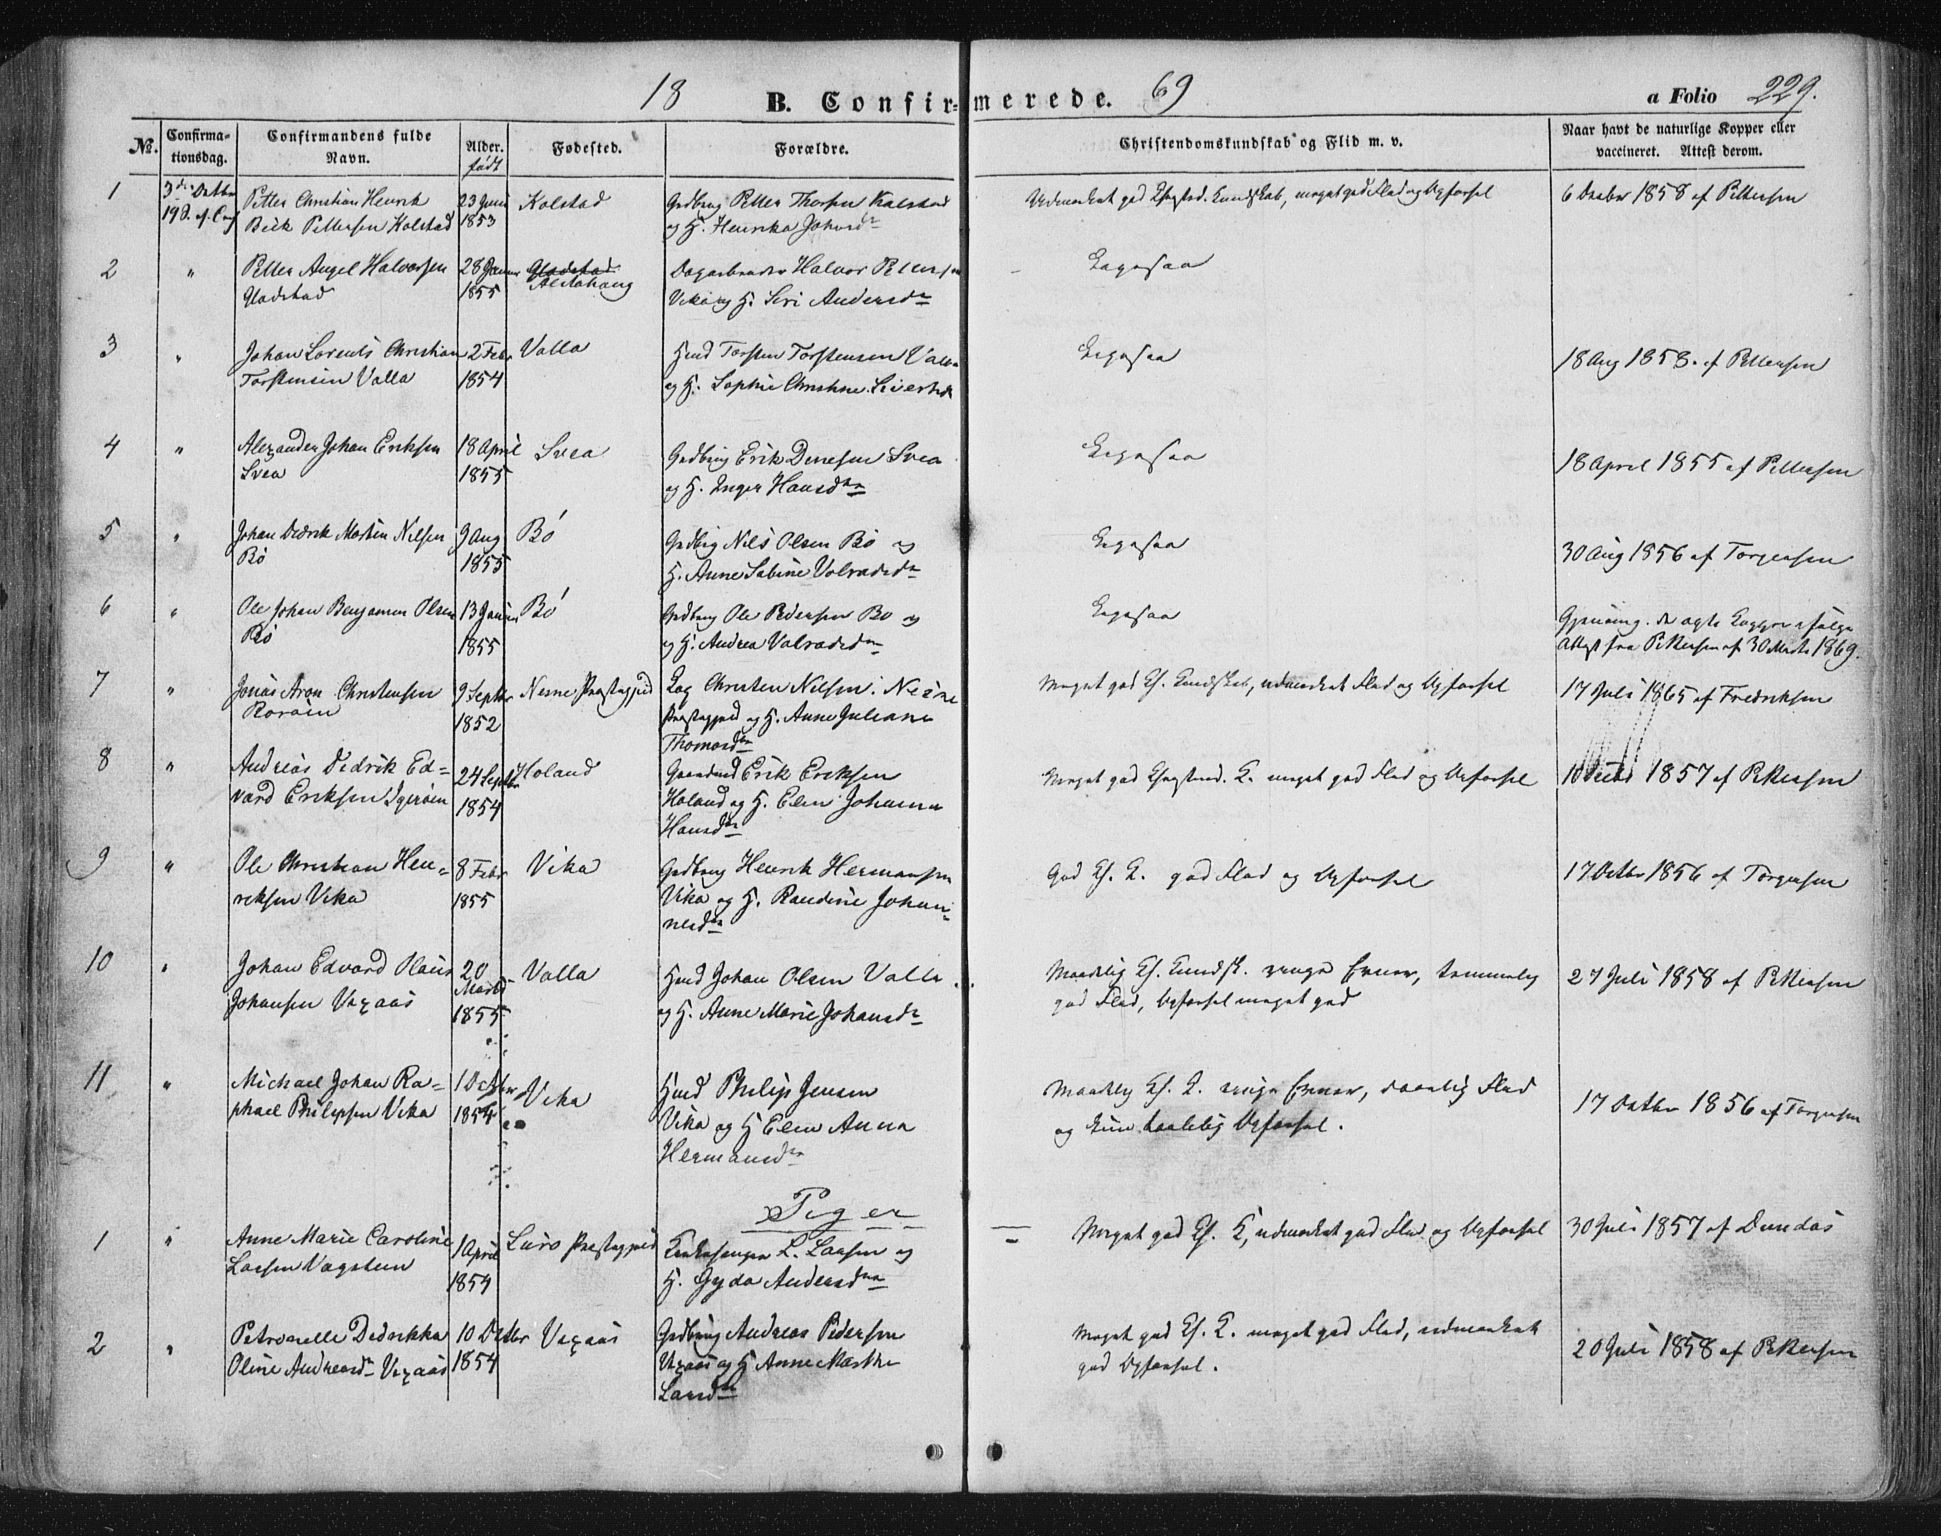 18 B. Confirmerede. 69 a Folio 229.
No. Confirmationsdag. Confirmandens fulde Navn. Alder. født Fødested. Forældre. Christendomskundskab og Flid m. v. Naar havt de naturlige Kopper eller vaccineret. Attest derom.
1 Petter Christian Henrik 23 Juni Kolstad Gadbrug Petter Thorsen Kolstad Udmærket god Chrstd. Kundskab, meget god Flid og Opførsel 6 Octber 1858 af Pettersen
Beck Pettersen Kolstad 1853 og H. Henrika Johnsdr
2 " Petter Angel Halvorsen 28 Januar Gladstad Halvor Petersen Ligesaa
Gladstad 1855 Alstahoug Vika og H. Siri Andersdr
3 " Johan Lorents Christian 2 Febr Valla Husd Torsten Torstensen Valla Ligesaa 18 Aug 1858. af Pettersen
Torstensen Valla 1854 og H. Sophie Christine Sivertsdr
4 " Alexander Johan Eriksen 18 April Svea Gadbrug Erik Denesen Svea Ligesaa 18 April 1855 af Pettersen
Svea 1855 og H. Inger Hansdtr
5 " Johan Didrik Martin Nilsen 9 Aug Bö Gadbrg Nils Olsen Bö og Ligesaa 30 Aug 1856 af Torgersen
Bö 1855 H. Anne Sabine Volradsdr
6 " Ole Johan Benjamin Olsen 13 Januar Bö Gadbrug Ole Pedersen Bö og Ligesaa Gjennemg. de ægte Kopper ifølge
Bö 1855 og H. Andrea Volradsdtr Attest fra Pettersen af 30 Marts 1869.
7 " Jonas Aron Christensen 9 Septbr Nesne Præstegjeld Log Christen Nilsen. Nesne Meget god Ch. Kundskab, udmærket Flid og Opførsel 17 Juli 1865 af Fredriksen
Rorøen 1852 Præstegjeld og H. Anne Juliane
Thomasdtr
8 " Andreas Didrik Ed= 24 Septbr Holand Gaardmd Erik Eriksen Meget god Chrstend. K. meget god Flid og Opførsel 10 1857 af Pettersen
vard Eriksen Igerøen 1854 Holand og H. Elen Johanna
Hansdtr
9 " Ole Christian Hen= 8 Febr Vika Gadbrug Henrik Hermansen God Ch. K. god Flid og Opførsel 17 Octbr 1856 af Torgersen
riksen Vika 1855 Vika og H. Randine Johan=
nesdtr
10 " Johan Edvard Olaus 20 Marts Valla Husd Johan Olsen Valla Maadelig Ch. Kundsk. ringe Evner, temmelig 27 Juli 1858 af Pettersen
Johansen Vexaas 1855 og H. Anne Marie Johansdr god Flid, Opførsel meget god
11 " Michael Johan Ra= 1 Octber Vika Husd Philip Jensen Maadelig Ch. K. ringe Evner, daarlig Flid 17 Octbr 1856 af Torgersen
phael Philipsen Vika 1854 Vika og H Elen Anna og kun taalelig Opførsel.
Hermansdr
Piger
1 " Anne Marie Caroline 1 April Lurö Præstegjeld Kirkesanger L. Larsen og Meget god Ch. K, udmærket god Flid og Opførsel 30 Juli 1857 af Dundas
Larsen Vagsteen 1854 H. Gyda Andersdtr
2 " Petronelle Didrikka 10 Octbr Vexaas Gadbrug Andreas Pedersen Meget god Ch. K. meget god Flid, udmærket 20 Juli 1858 af Pettersen
Oline Andreasdr Vexaas 1854 Vexaas og H Anne Marthe god Opførsel.
Larsdtr